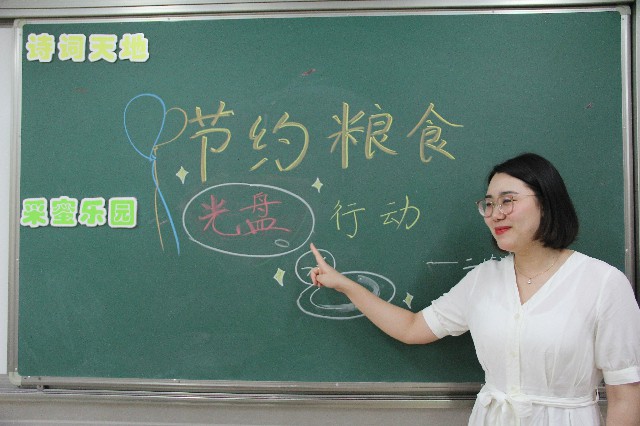 诗词天地
节约粮食
采蜜乐园
光盘行动